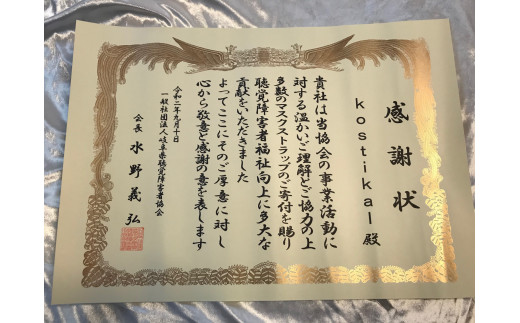 感謝状
kostikal 殿
貴社は当協会の事業活動に
対する温かいご理解とご協力の上
多数のマスクストラップのご寄付を賜り
聴覚障害者福祉向上に多大な
貢献をいただきました
よってここにそのご厚意に対し
心から敬意と感謝の意を表します
令和二年九月十日
一般社団法人岐阜県聴覚障害者協会
会長 水野義弘